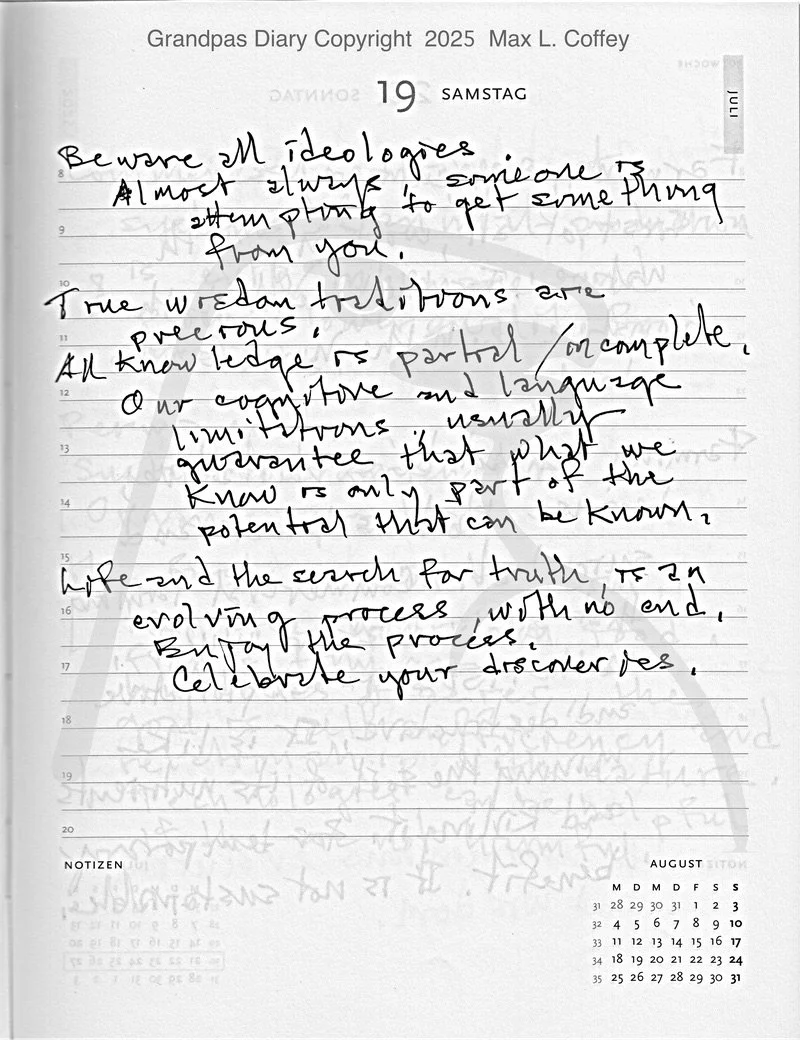 Grandpas Diary Copyright 2025 Max L. Coffey
19 SAMSTAG
JULI
Beware all ideologies.
Almost always, someone is
attempting to get something
from you.
True wisdom traditions are
precious.
All knowledge is partial / incomplete.
Our cognitive and language
limitations, usually
guarantee that what we
know is only part of the
potential that can be known.
Life and the search for truth, is an
evolving process, with no end.
Enjoy the process.
Celebrate your discoveries.
8
9
10
11
12
13
14
15
16
17
18
19
20
NOTIZEN
AUGUST
M D M D F S S
31 28 29 30 31 1 2 3
32 4 5 6 7 8 9 10
33 11 12 13 14 15 16 17
34 18 19 20 21 22 23 24
35 25 26 27 28 29 30 31